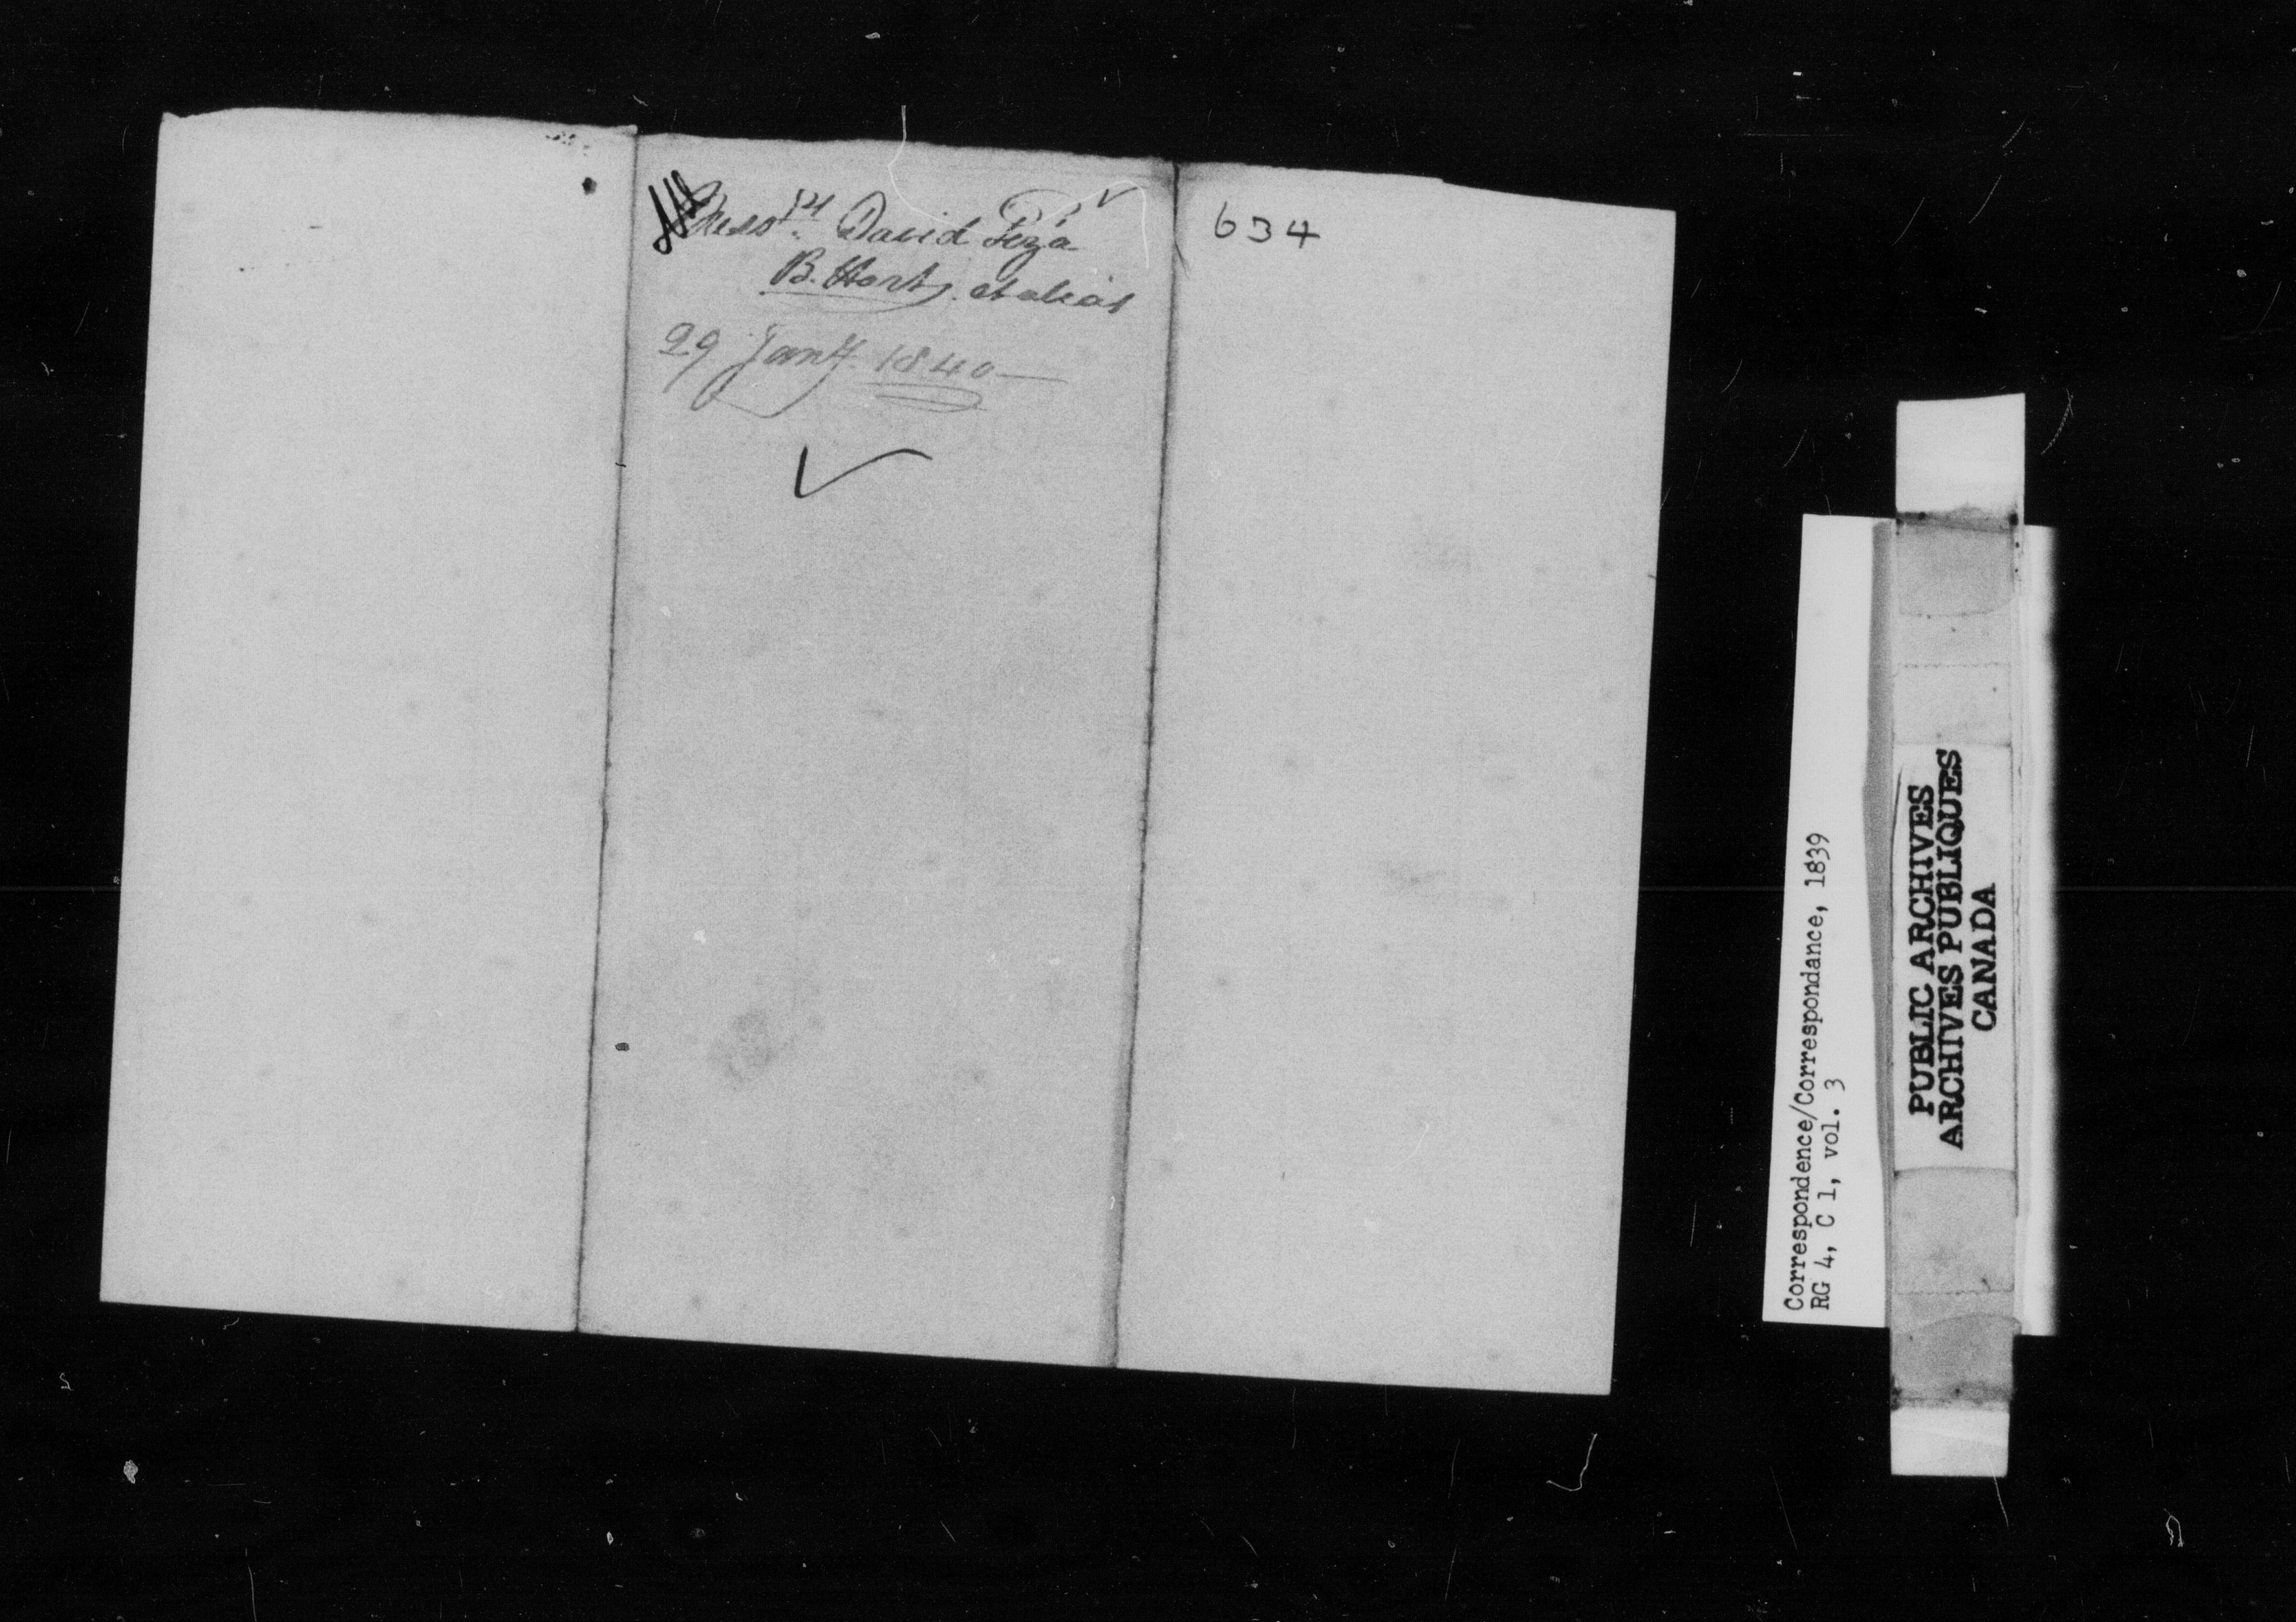 Mess.rs David Piza
B. Hart, et alias
29 Jany. 1840
634
Correspondence/Correspondance, 1839
RG 4, C 1, vol. 3
PUBLIC ARCHIVES
ARCHIVES PUBLIQUES
CANADA